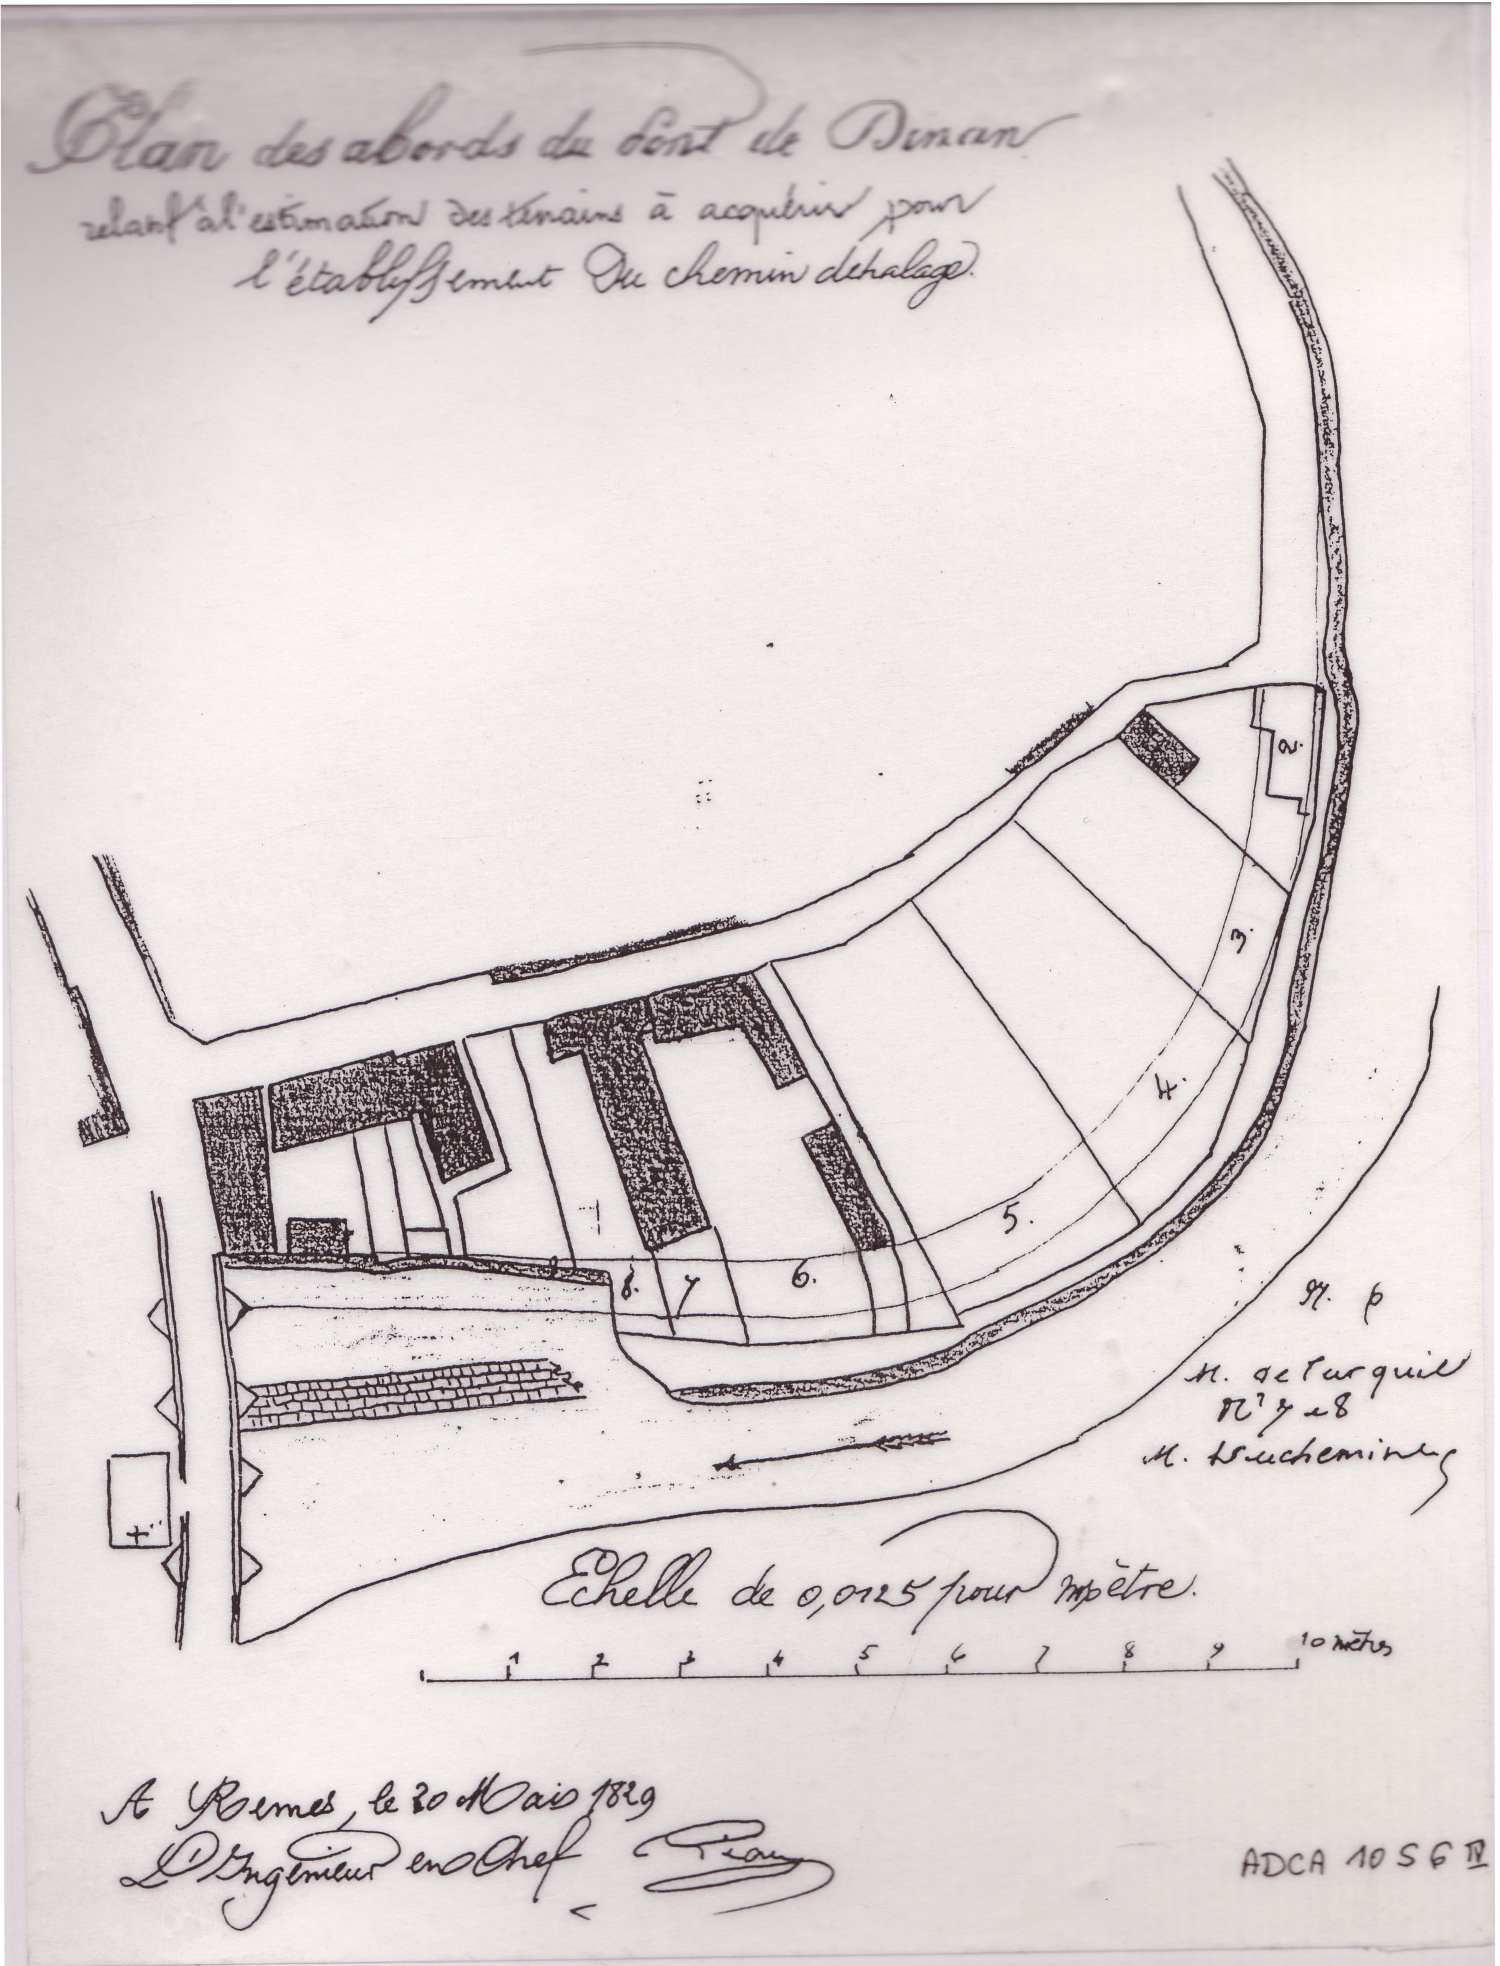 Plan des abords du Pont de Dinan
relatif à l'estimation des terrains à acquérir pour
l'établissement Du chemin dehalage.
2.
3.
4.
5.
6.
7
8.
N. 6
M. de Turquil
N° 7 et 8
M. Duchemin
Echelle de 0,0125 pour mètre.
1 2 3 4 5 6 7 8 9 10 mètres
A Rennes, le 30 Mais 1829
L'Ingénieur en Chef
ADCA 10 S 6 IV